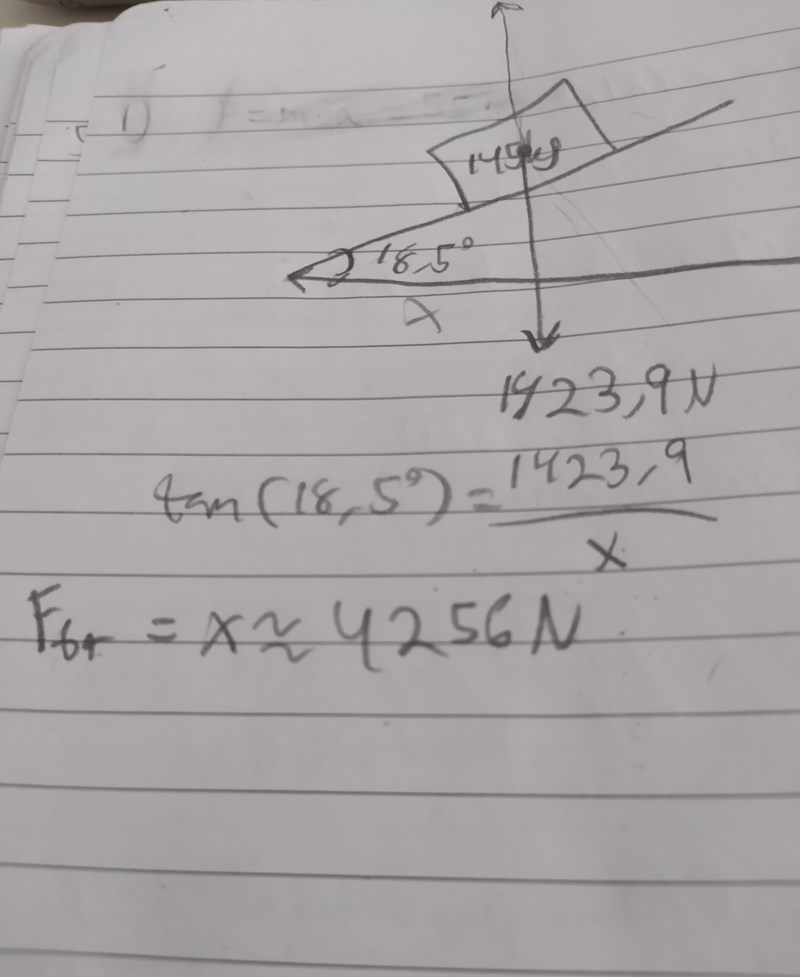 1)
145kg
18,5°
x
1423,9N
tan(18,5°) = 1423,9 / x
= x ≈ 4256N